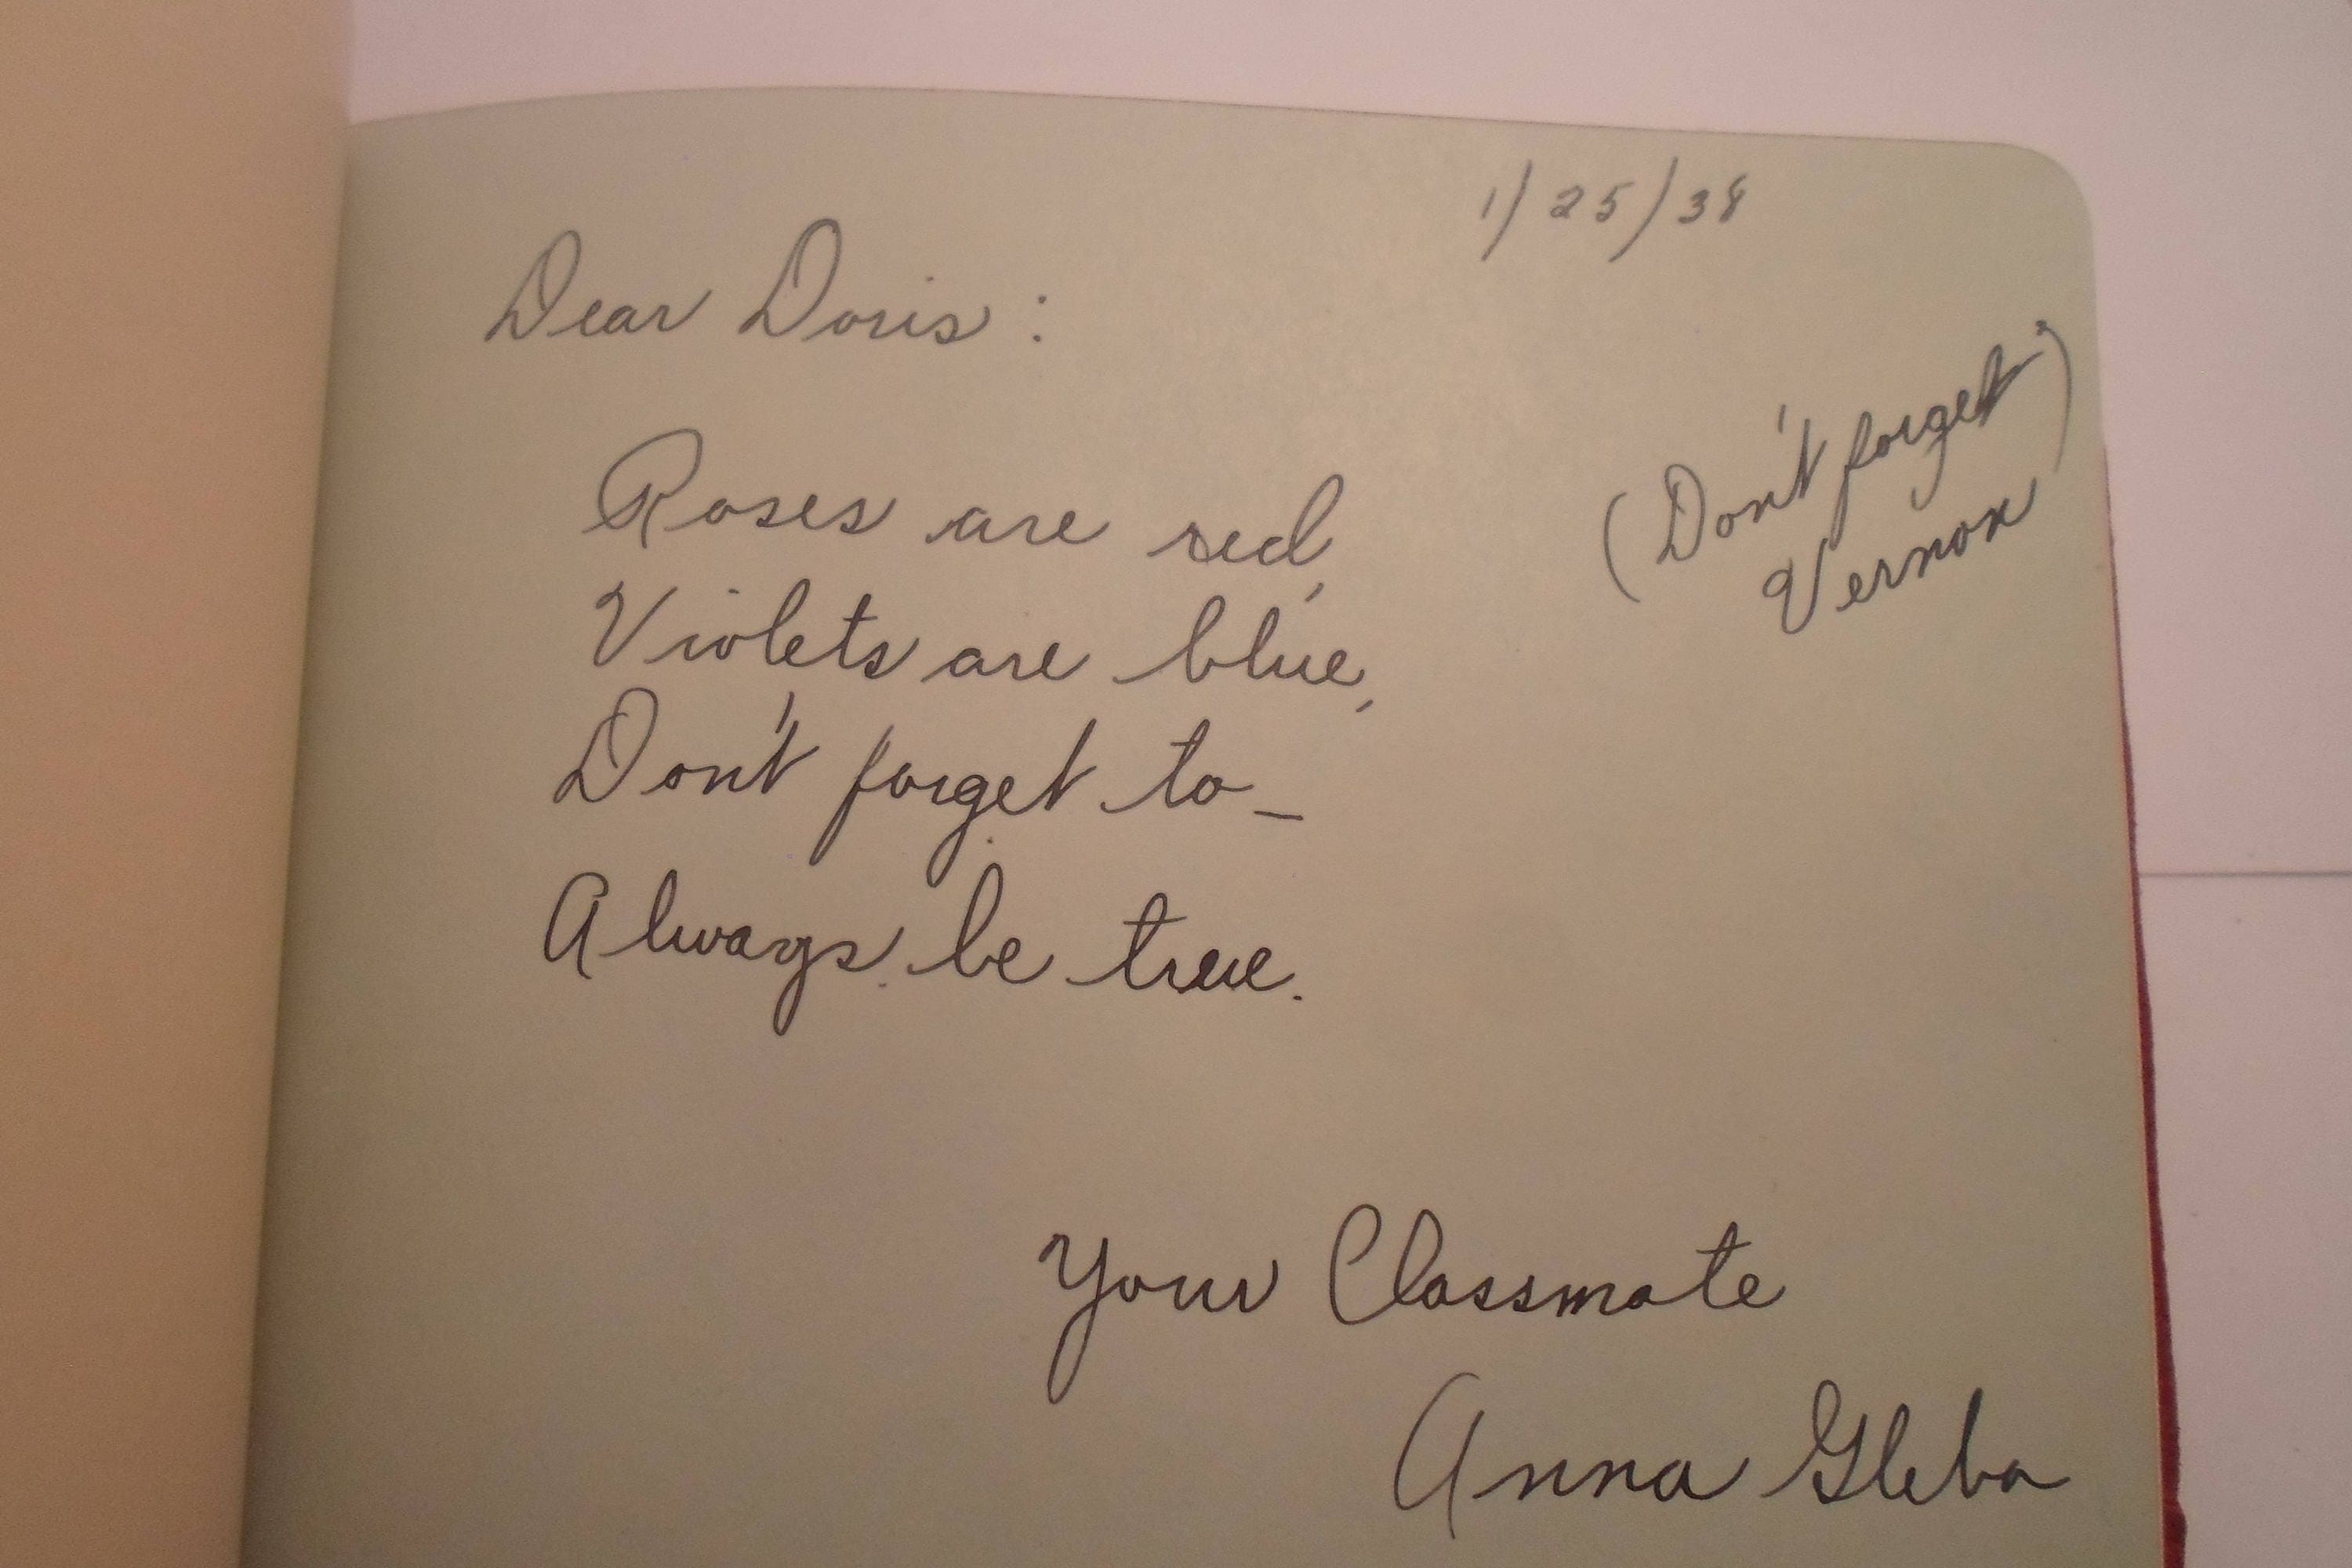 1/25/38
Dear Doris:
(Don't forget)
Vernon
Roses are red,
Violets are blue,
Don't forget to—
Always be true.
Your Classmate
Anna Gleba